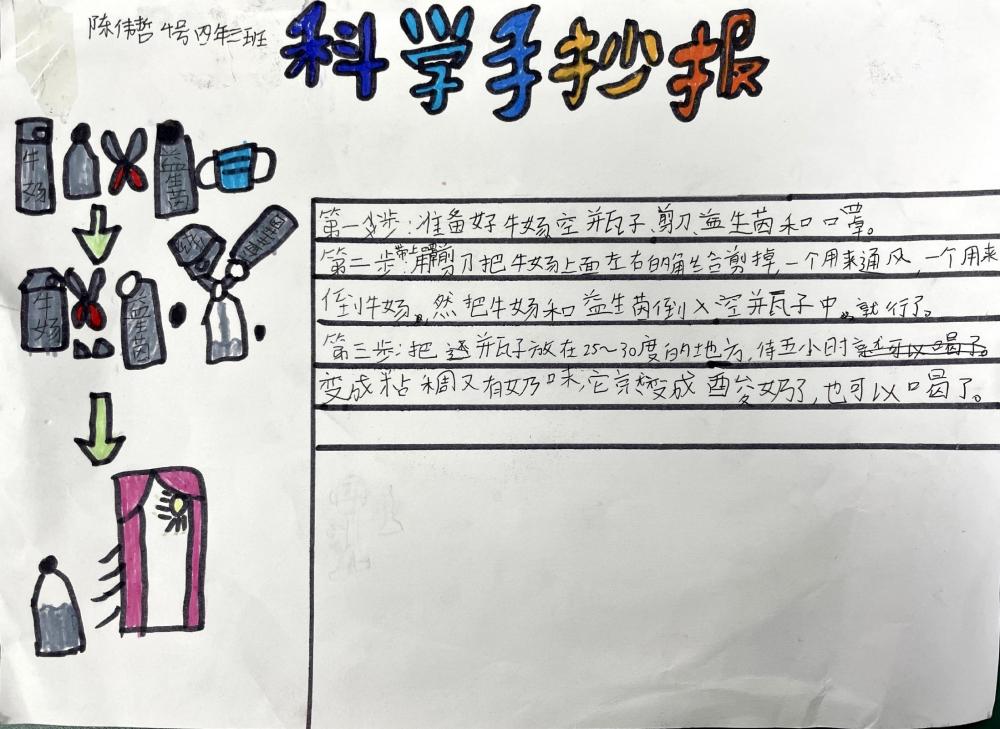 陈伟哲 4号 四年三班
科学手抄报
牛奶
益生菌
第一步:准备好牛奶、空瓶子、剪刀、益生菌和口罩。
第二步:带上口罩用剪刀把牛奶上面左右的角给剪掉,一个用来通风,一个用来
倒牛奶。然把牛奶和益生菌倒入空瓶子中。就行了。
第三步:把瓶子放在25~30度的地方,待五小时就可以喝了。
变成粘稠又有奶味,它就变成酸奶了,也可以喝了。
牛奶
益生菌